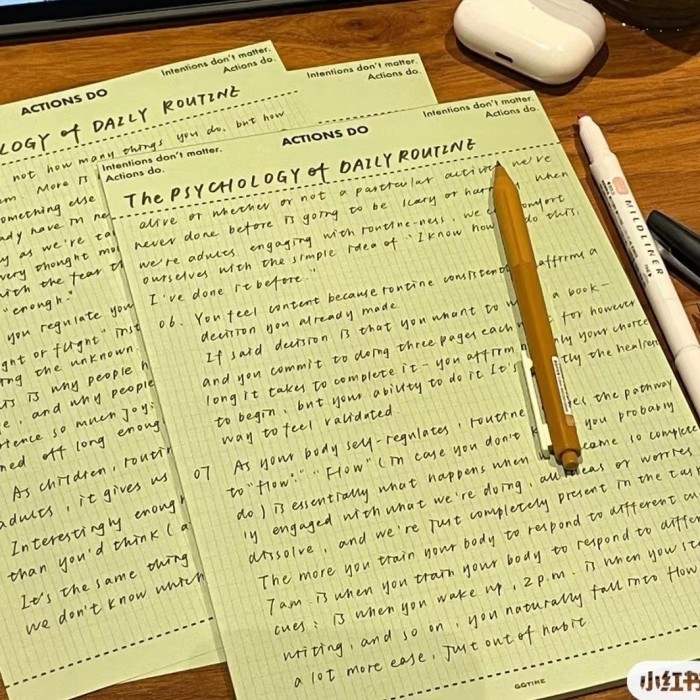 Intentions don't matter.
Actions do.
ACTIONS DO
LOGY of DAILY ROUTINE
not how many things you do, but how
More is
something else
ady have in ne
y as we're ta
very thought mo
with the fear th
"enough."
you regulate you
ght or flight" inst
ing the unknown.
is is why people h
e, and why people
rience so much joy:
ned off long enoug
As children, routin
adults, it gives us
Interestingly enough
than you'd think (a
It's the same thing
we don't know which
Intentions don't matter.
Actions do.
Intentions don't matter.
Actions do.
ACTIONS DO
Intentions don't matter.
Actions do.
The PSYCHOLOGY of DAILY ROUTINE
alive or whether or not a particular activi we've
never done before is going to be scary or har when
we're adults engaging with routine-ness, we comfort
ourselves with the simple idea of "I know how do this,
I've done it before."
06. You feel content because routine consistent affirms a
decision you already made
If said decision is that you want to w a book-
and you commit to doing three pages each for however
long it takes to complete it - you affirm ly your choice
to begin, but your ability to do it It's tly the healthi
way to feel validated
07 As your body self-regulates, routine es the pathway
to "flow" "Flow" (in case you don't you probably
do) is essentially what happens when came so complete
ly engaged with what we're doing, all ideas or worries
dissolve, and we're just completely present in the tas
The more you train your body to respond to different
7am is when you train your body to respond to differe
cues: is when you wake up, 2p.m. is when you st
writing, and so on, you naturally fall into flow
a lot more ease, just out of habit
GGTIME
MILDLINER
小红书